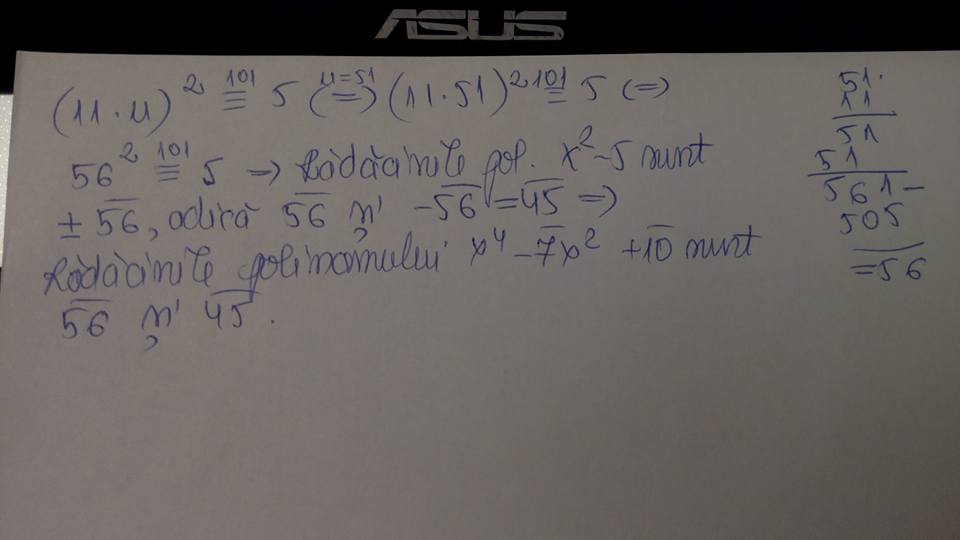 ASUS
(11·u)² ≡¹⁰¹ 5 (u=51 <=>) (11·51)² ≡¹⁰¹ 5 <=>
56² ≡¹⁰¹ 5 => Rădăcinile pol. x²-5 sunt
± 5̅6̅, adică 5̅6̅ și -5̅6̅ = 4̅5̅ =>
Rădăcinile polinomului x⁴ - 7̅x² + 1̅0̅ sunt
5̅6̅ și 4̅5̅.
51·
11
51
51
561-
505
=56